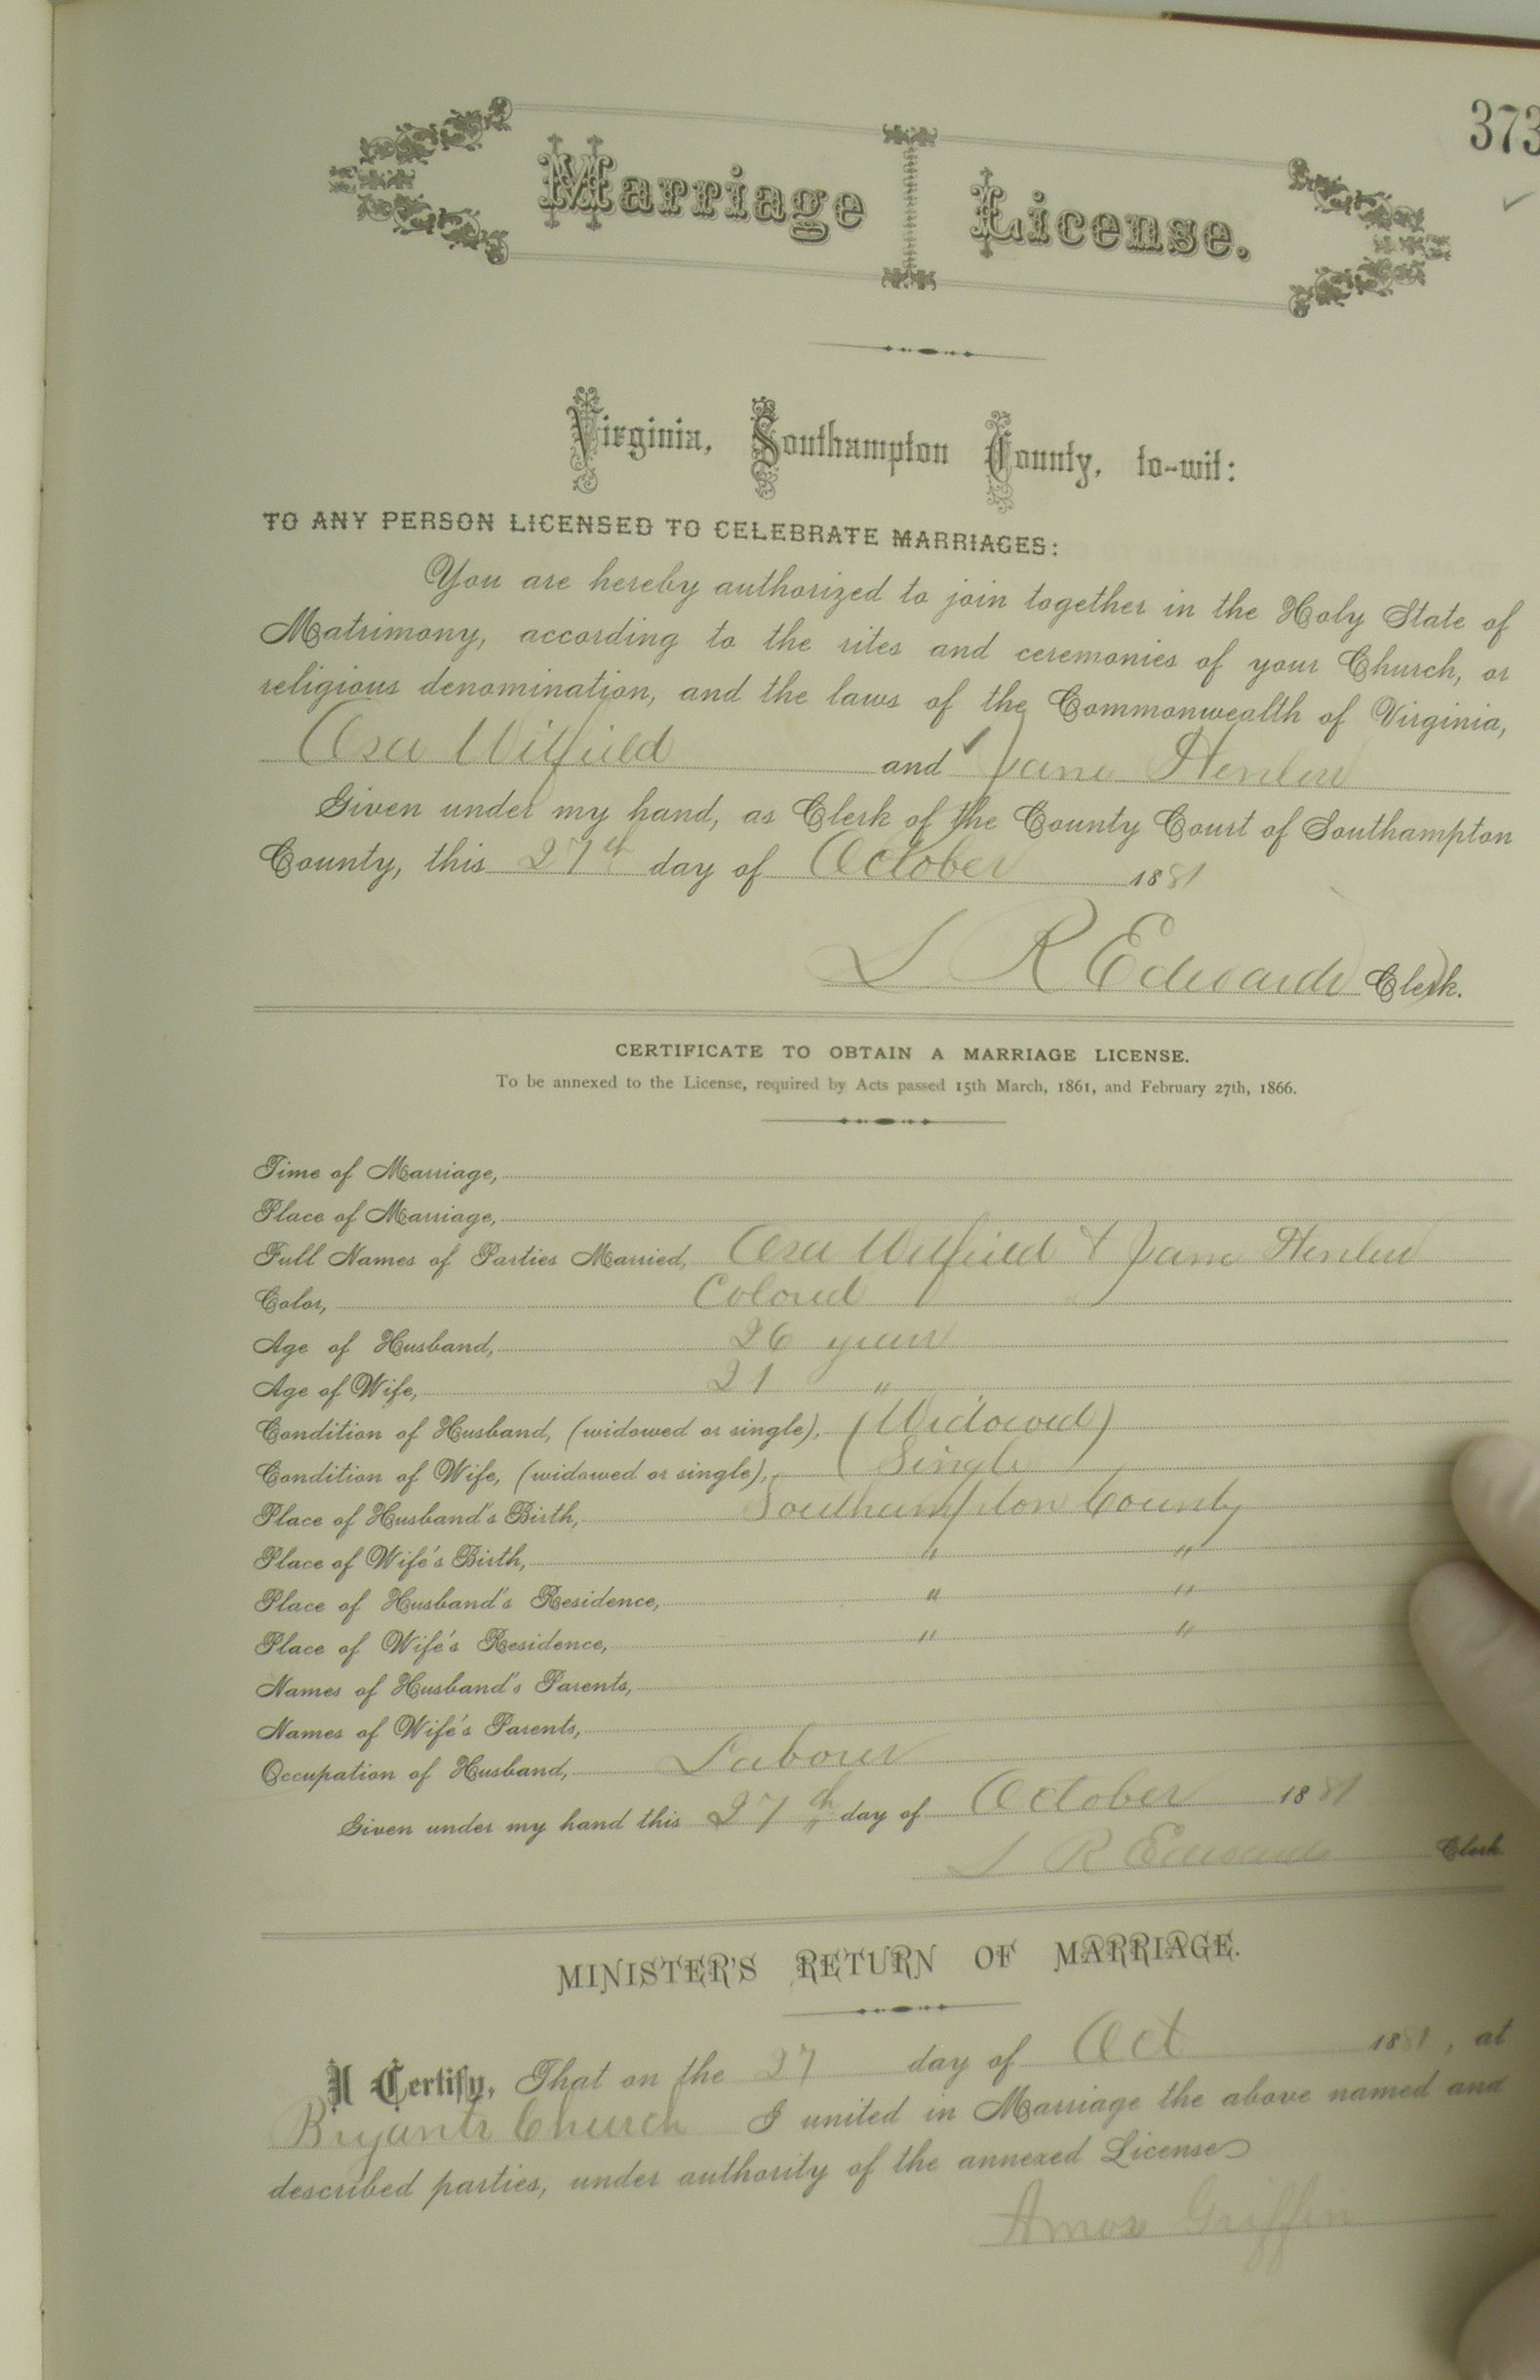 373
Marriage License.
Virginia, Southampton County, to-wit:
TO ANY PERSON LICENSED TO CELEBRATE MARRIAGES:
You are hereby authorized to join together in the Holy State of
Matrimony, according to the rites and ceremonies of your Church, or
religious denomination, and the laws of the Commonwealth of Virginia,
Asa Witfield and Jane
Given under my hand, as Clerk of the County Court of Southampton
County, this 27th day of October 1881
L R Edwards Clerk.
CERTIFICATE TO OBTAIN A MARRIAGE LICENSE.
To be annexed to the License, required by Acts passed 15th March, 1861, and February 27th, 1866.
Time of Marriage,
Place of Marriage,
Full Names of Parties Married, Asa Witfield & Jane
Color, Colored
Age of Husband, 26 years
Age of Wife, 21 "
Condition of Husband, (widowed or single), (Widowed)
Condition of Wife, (widowed or single), Single
Place of Husband's Birth, Southampton County
Place of Wife's Birth, " "
Place of Husband's Residence, " "
Place of Wife's Residence, " "
Names of Husband's Parents,
Names of Wife's Parents,
Occupation of Husband, Laborer
Given under my hand this 27th day of October 1881
L R Edwards Clerk
MINISTER'S RETURN OF MARRIAGE.
I Certify, That on the 27 day of Oct 1881, at
Bryants Church I united in Marriage the above named and
described parties, under authority of the annexed License
Amos Griffin